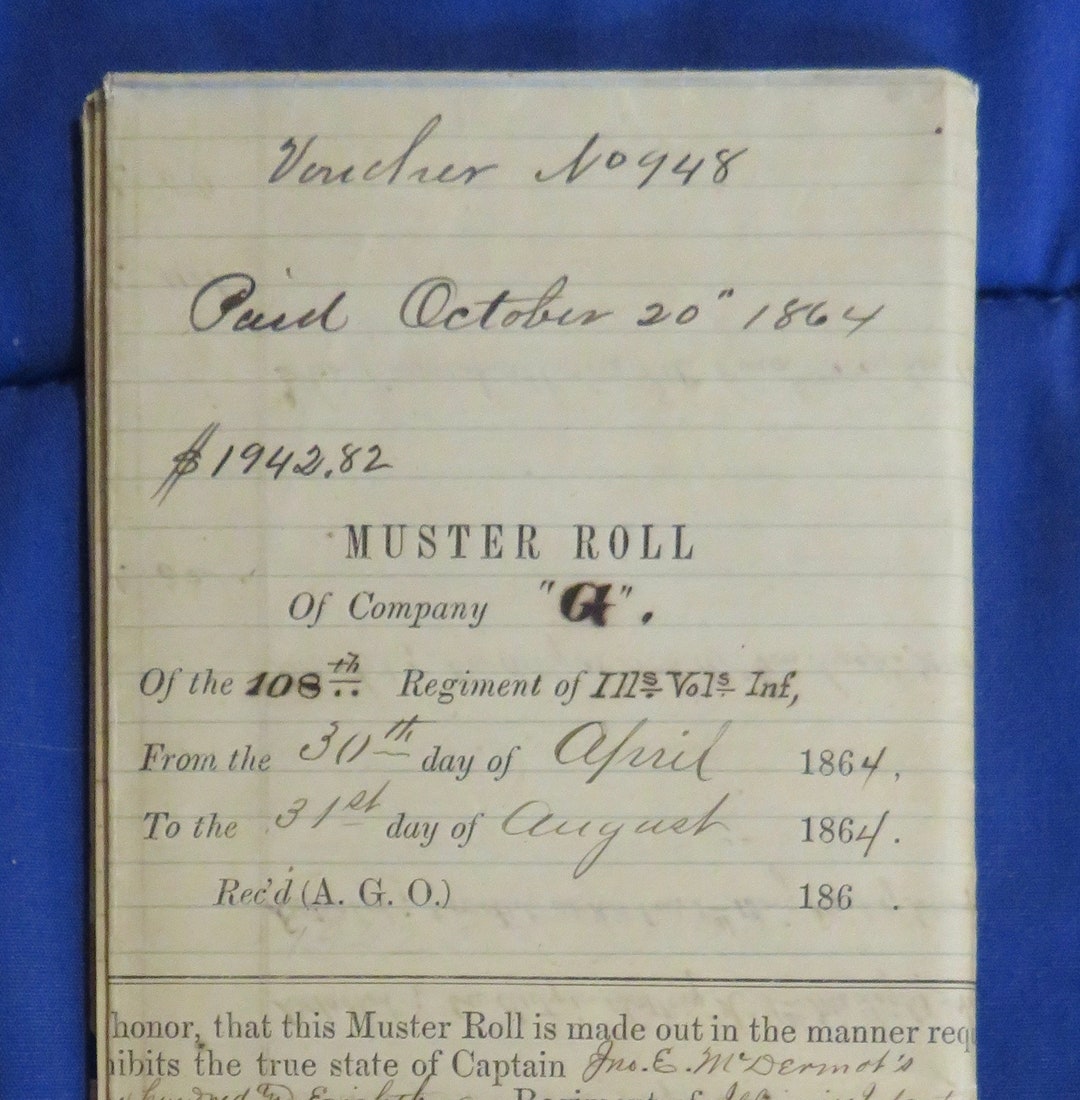 Voucher No 948
Paid October 20" 1864
$1942.82
MUSTER ROLL
Of Company "G".
Of the 108th Regiment of Ills Vols Inf,
From the 30th day of April 1864,
To the 31st day of August 1864.
Rec'd (A. G. O.) 186 .
honor, that this Muster Roll is made out in the manner requ
ibits the true state of Captain Jno. E. McDermot's
hundred Regiment of